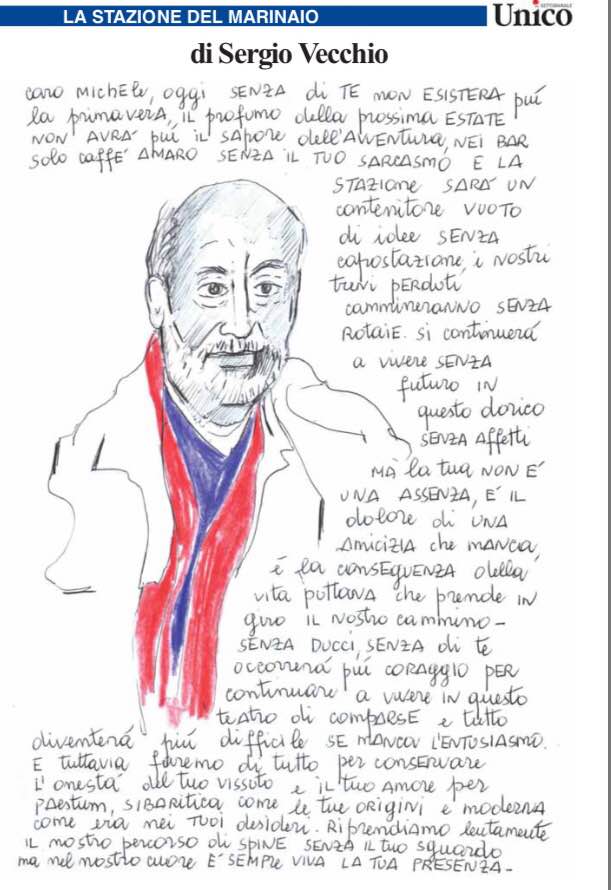 LA STAZIONE DEL MARINAIO
SETTIMANALE
Unico
di Sergio Vecchio
caro MICHELE, oggi SENZA di TE non ESISTERÁ piú
la primavera, IL profumo della prossima ESTATE
NON AVRA' piú IL SAPORE dell'AVVENTURA, NEI BAR
SOLO CAFFE' AMARO SENZA IL TUO SARCASMO E LA
STAZIONE SARÁ UN
contenitore VUOTO
di idee SENZA
capostazione, i nostri
treni PERDUTI,
cammineranno SENZA
ROTAIE. SI continuerá
a vivere SENZA
futuro IN
questo dorico
SENZA AFFETTI
MÀ la tua NON E'
UNA ASSENZA, E' IL
dolore di UNA
AMICIZIA che MANCA,
é la CONSEGUENZA della
vita puttana che prende IN
giro IL NOSTRO cammino -
SENZA DUCCI, SENZA di te
occorrerá piú CORAGGIO PER
continuare a vivere IN questo
teatro di COMPARSE e tutto
diventerá piú difficile SE MANCA L'ENTUSIASMO.
E tuttavia faremo di tutto per conservare
L'onestá del tuo vissuto e IL tuo AMORE per
PAESTUM, SIBARITICA come le tue ORIGINI e moderna
come era nei TUOI desideri. Riprendiamo lentamente
IL nostro percorso di SPINE SENZA IL tuo sguardo
ma nel nostro cuore E' SEMPRE VIVA LA TUA PRESENZA -